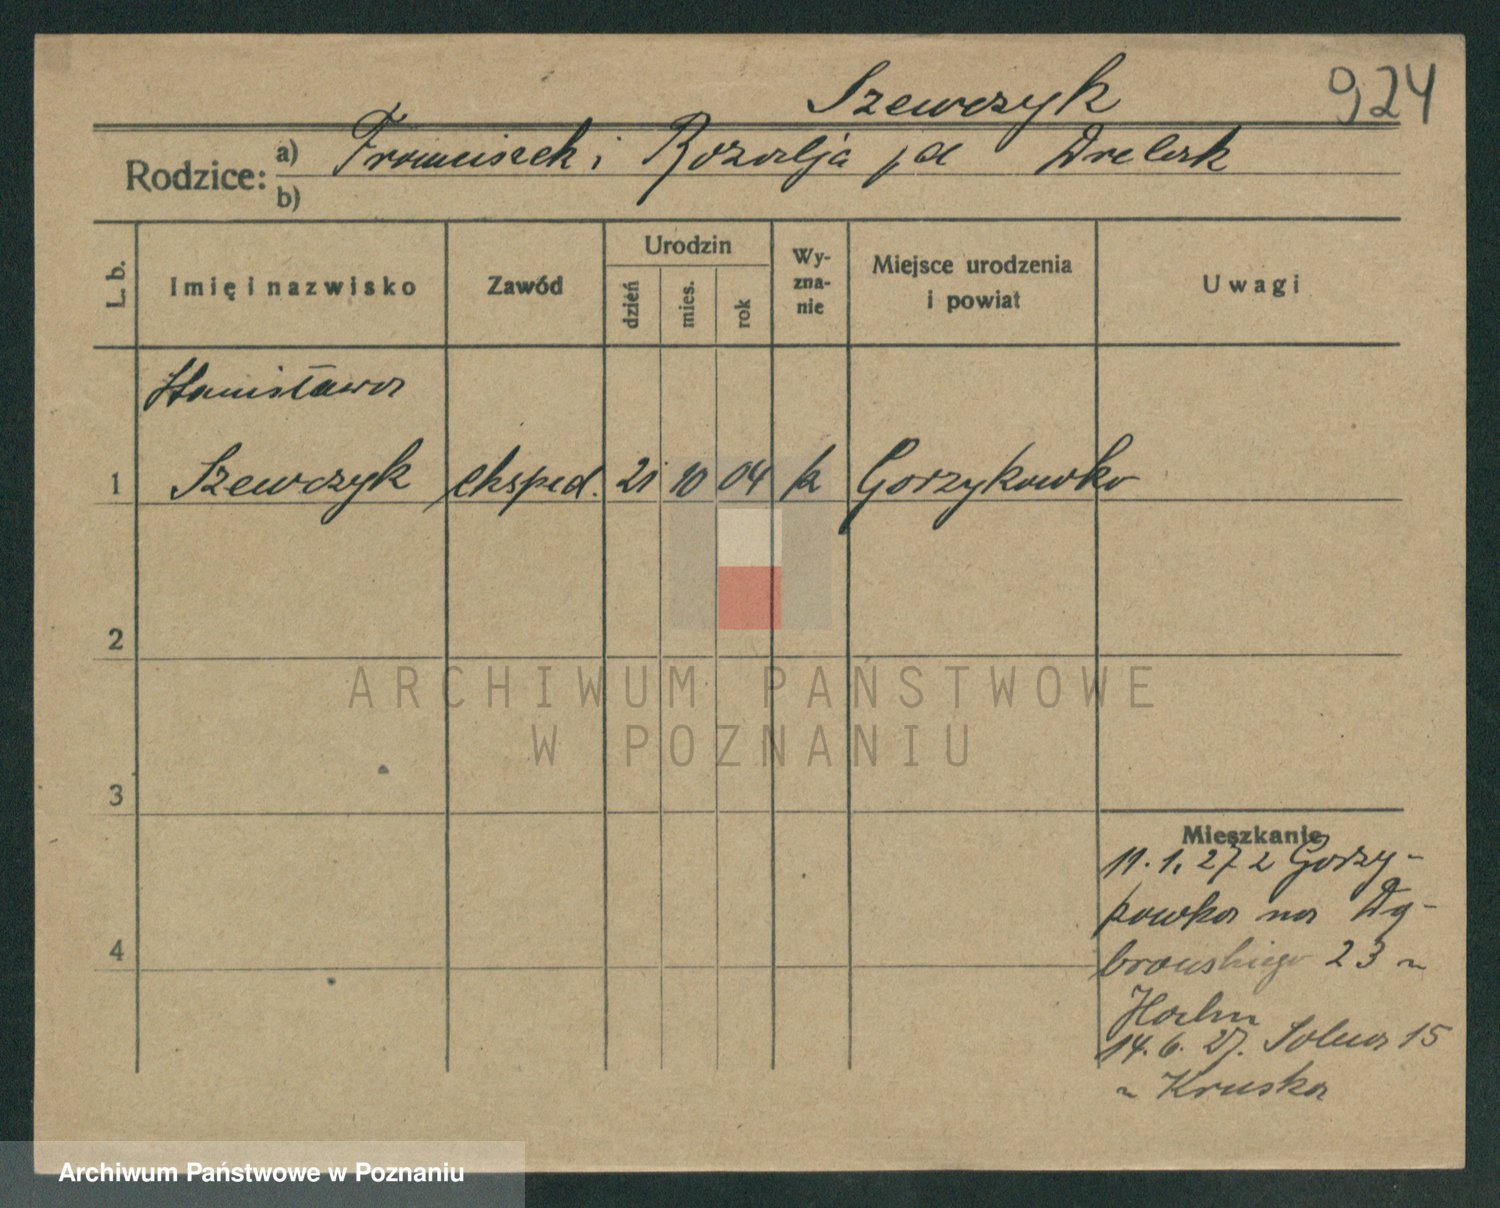 924
Szewczyk
Rodzice: a) Franciszek i Rozalja
b)
L. b.
Imię i nazwisko
Zawód
Urodzin
dzień
mies.
rok
Wy-
zna-
nie
Miejsce urodzenia
i powiat
Uwagi
Stanisława
1 Szewczyk eksped. 21 10 04 k Gorzykowko
2
3
4
Mieszkanie
11.1.27 z Gorzy-
kowka na Dą-
browskiego 23
14.6.27. Solna 15
Kruska
ARCHIWUM PAŃSTWOWE
W POZNANIU
Archiwum Państwowe w Poznaniu